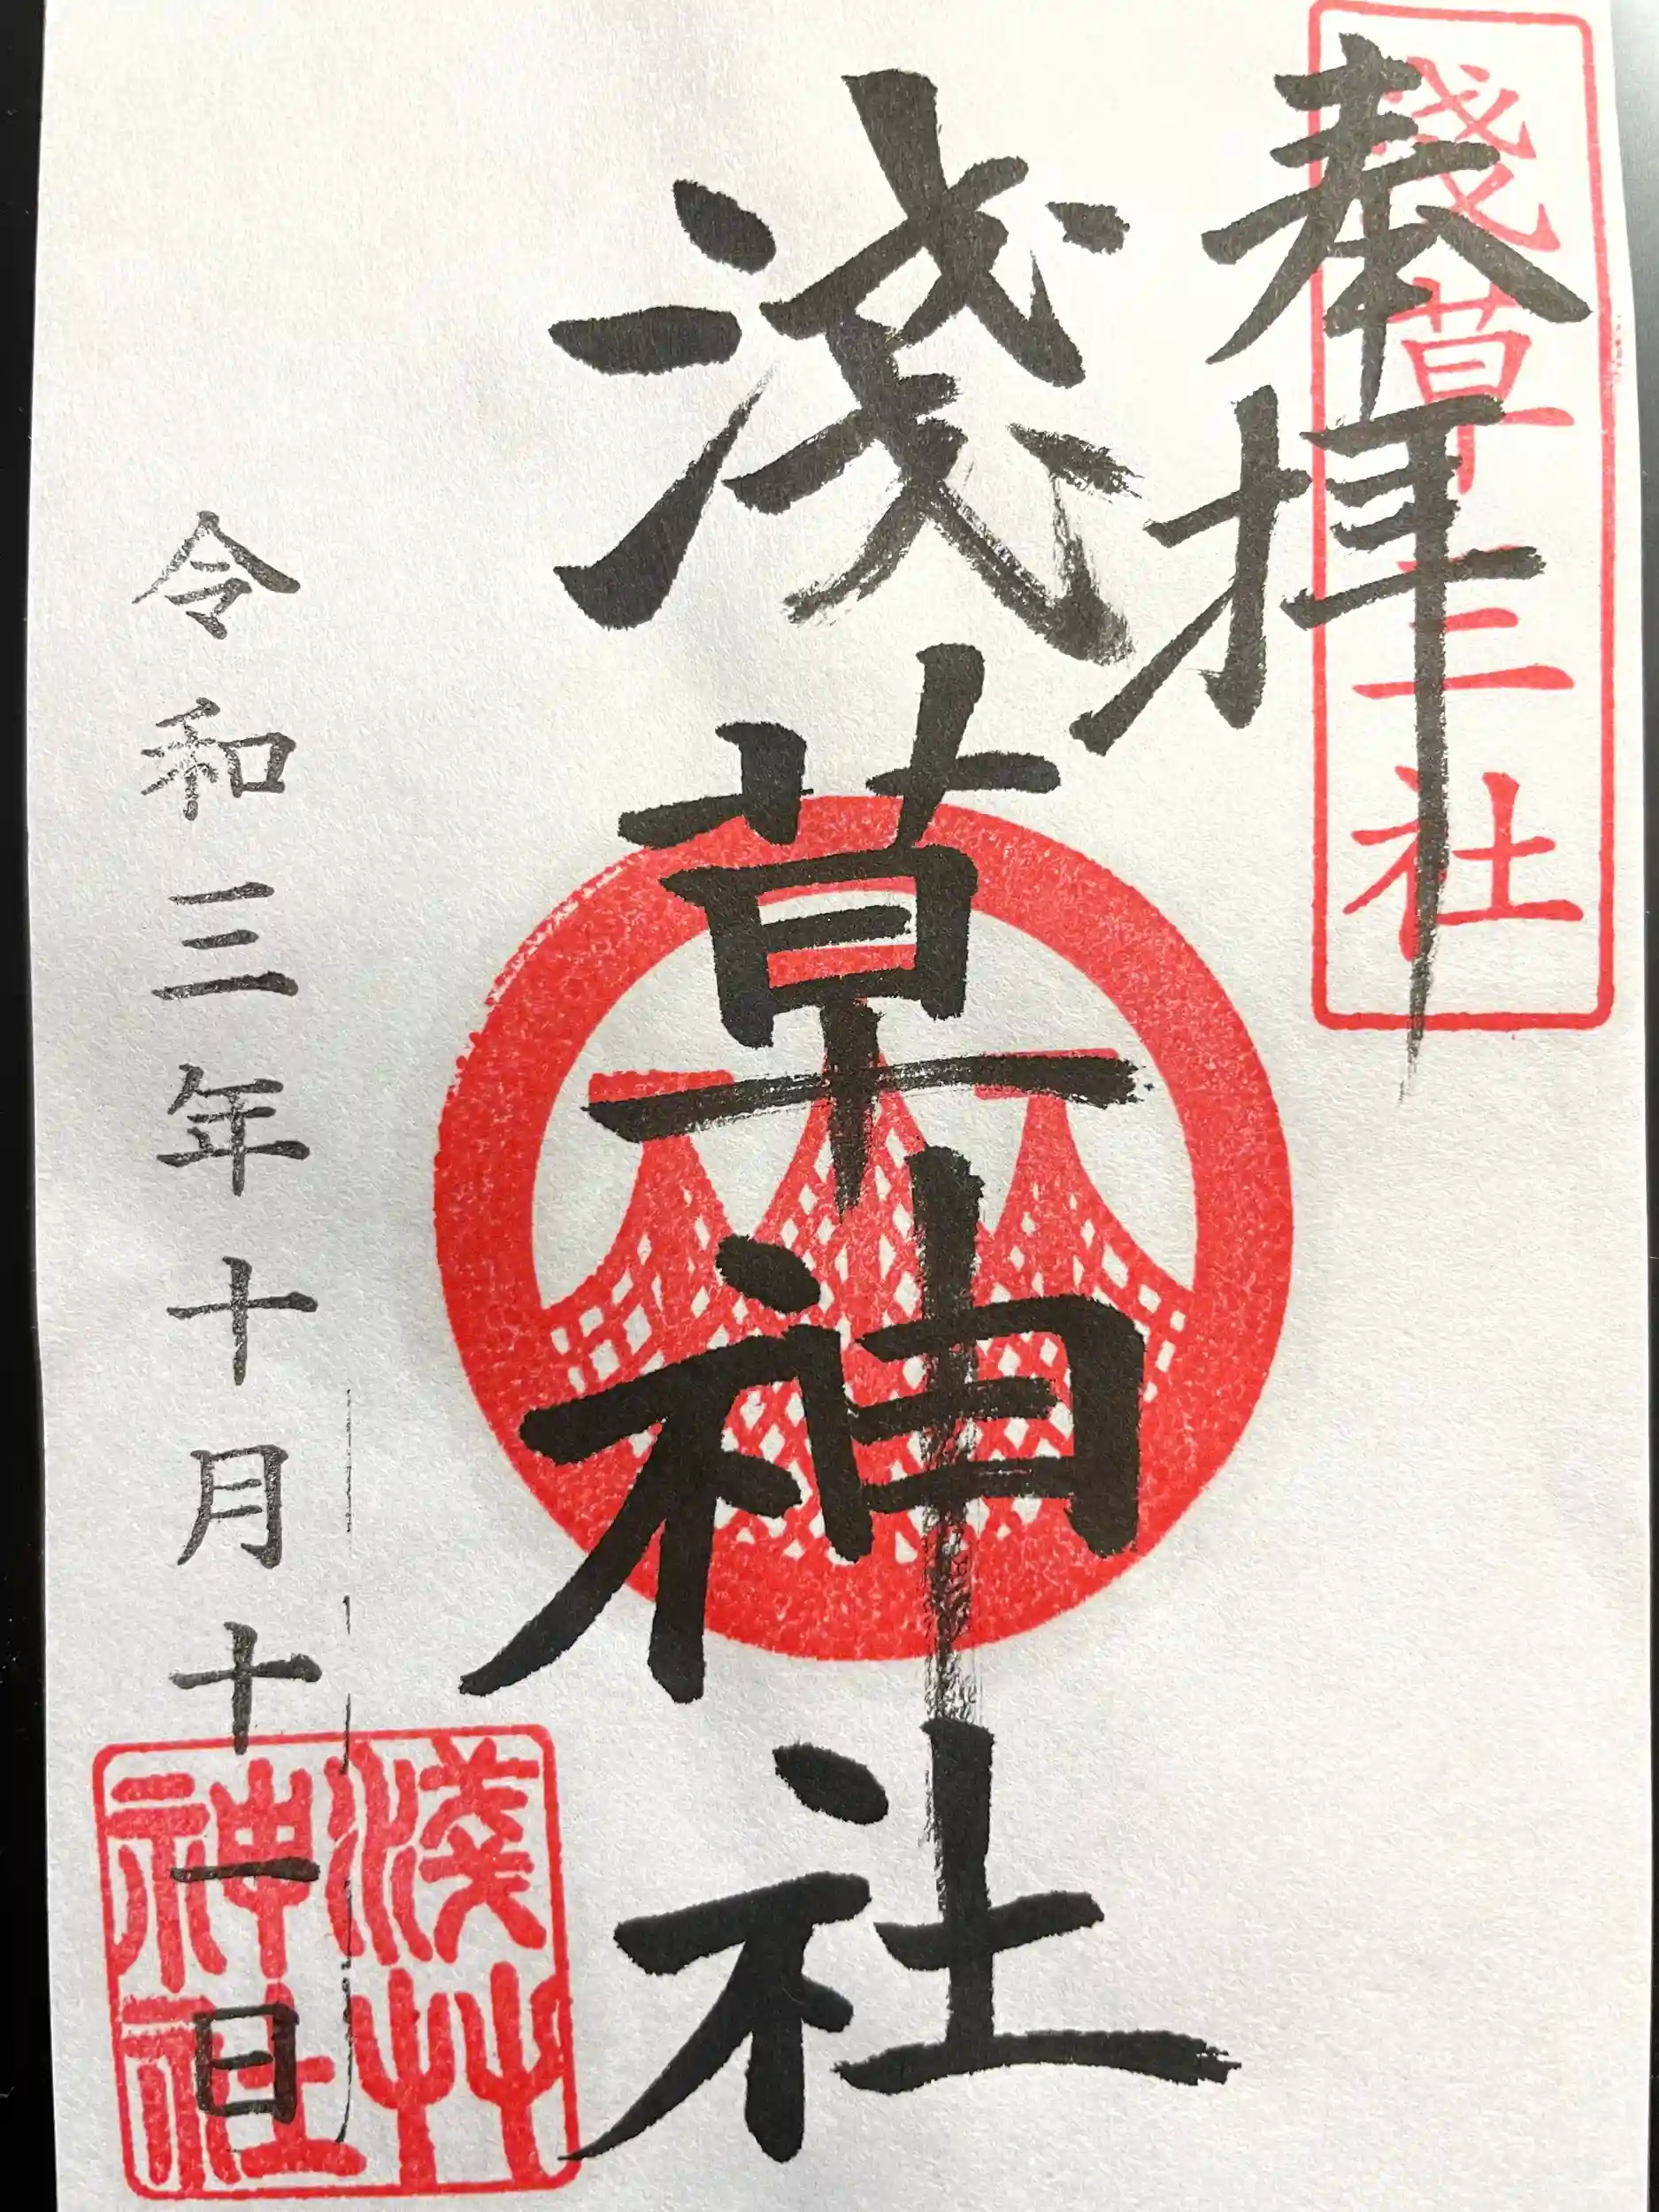 奉拝
淺草三社
淺草神社
令和三年十月十一日
淺艸
神社